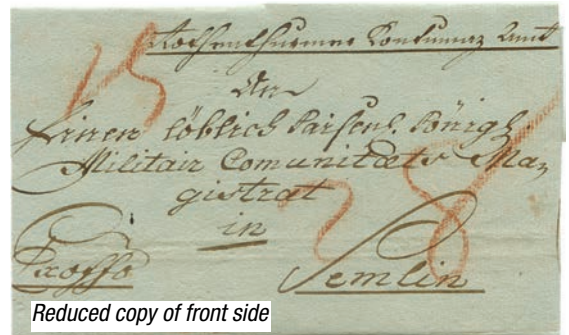 Rothenthurmer Contumaz Amt
An
Einen löblich Kaiserl. Königl.
Militair Comunitæts Ma=
gistrat
in
Ex offo Semlin
28
Reduced copy of front side